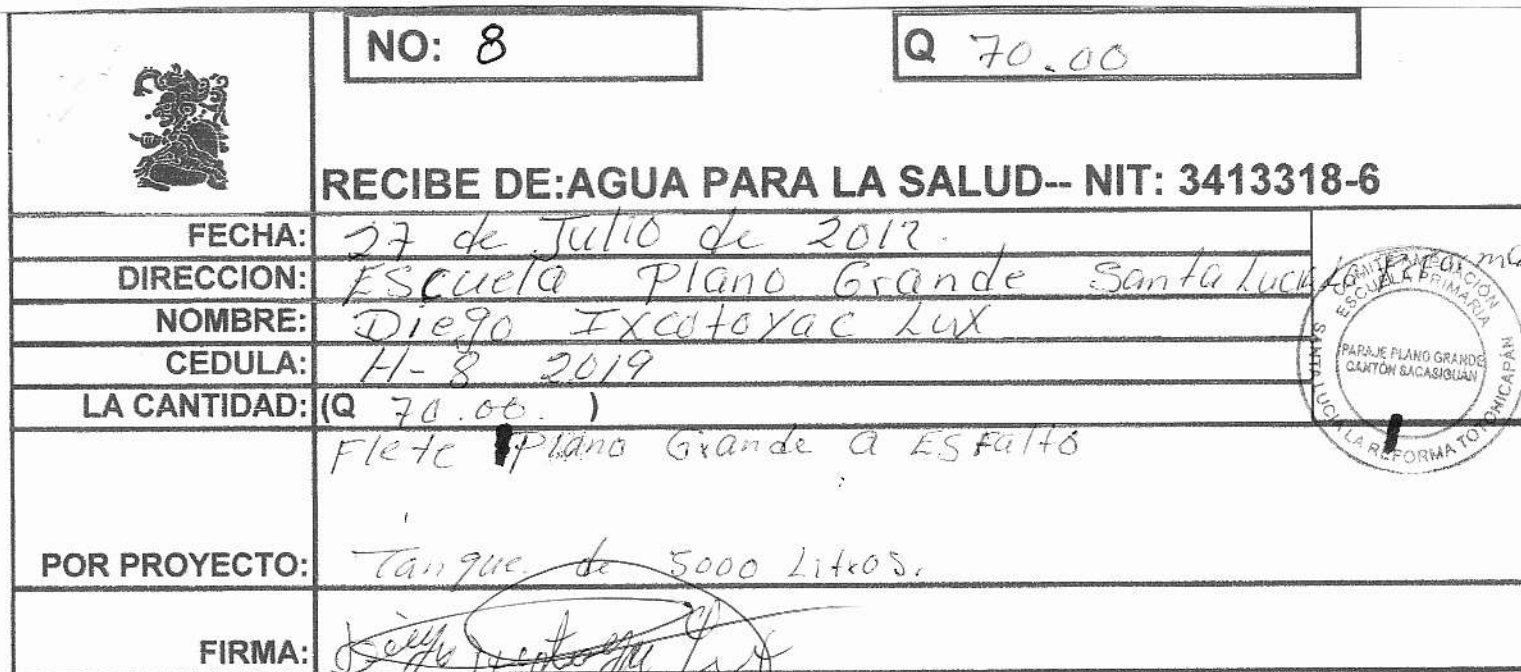 NO: 8
Q 70.00
RECIBE DE:AGUA PARA LA SALUD-- NIT: 3413318-6
FECHA: 27 de Julio de 2012.
DIRECCION: Escuela Plano Grande Santa Lucia La Reforma
NOMBRE: Diego Ixcotoyac Lux
CEDULA: H-8 2019
LA CANTIDAD: (Q 70.00. )
Flete Plano Grande a Esfalto
POR PROYECTO: Tanque de 5000 Litros.
FIRMA: Diego Ixcotoyac Lux
ESCUELA PRIMARIA
PARAJE PLANO GRANDE
CANTÓN SACASIGUÁN
SANTA LUCIA LA REFORMA TOTONICAPÁN